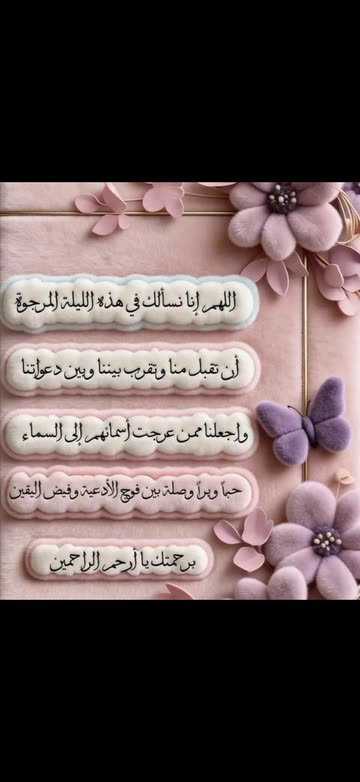 اللهم إنا نسألك في هذه الليلة المرجوة
أن تقبل منا وتقرب بيننا وبين دعواتنا
واجعلنا ممن عرجت أسمائهم إلى السماء
حباً وبراً وصلة بين فوج الأدعية وفيض اليقين
برحمتك يا أرحم الراحمين